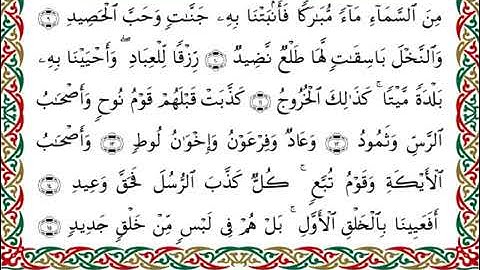 مِنَ ٱلسَّمَآءِ مَآءً مُّبَٰرَكًا فَأَنۢبَتْنَا بِهِۦ جَنَّٰتٍ وَحَبَّ ٱلْحَصِيدِ ۝٩
وَٱلنَّخْلَ بَاسِقَٰتٍ لَّهَا طَلْعٌ نَّضِيدٌ ۝١٠ رِّزْقًا لِّلْعِبَادِ ۖ وَأَحْيَيْنَا بِهِۦ
بَلْدَةً مَّيْتًا ۚ كَذَٰلِكَ ٱلْخُرُوجُ ۝١١ كَذَّبَتْ قَبْلَهُمْ قَوْمُ نُوحٍ وَأَصْحَٰبُ
ٱلرَّسِّ وَثَمُودُ ۝١٢ وَعَادٌ وَفِرْعَوْنُ وَإِخْوَٰنُ لُوطٍ ۝١٣ وَأَصْحَٰبُ
ٱلْأَيْكَةِ وَقَوْمُ تُبَّعٍ ۚ كُلٌّ كَذَّبَ ٱلرُّسُلَ فَحَقَّ وَعِيدِ ۝١٤
أَفَعَيِينَا بِٱلْخَلْقِ ٱلْأَوَّلِ ۚ بَلْ هُمْ فِى لَبْسٍ مِّنْ خَلْقٍ جَدِيدٍ ۝١٥